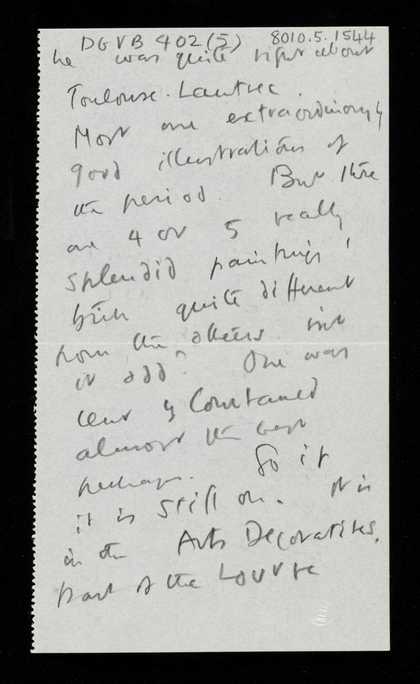 DGVB 402(5) 8010.5.1544
he was quite right about
Toulouse-Lautrec.
Most are extraordinarily
good illustrations of
the period. But there
are 4 or 5 really
splendid paintings!
quite different
from the others isn't
it odd? One was
lent by Courtauld
almost the best
perhaps. Go if
it is still on. It is
in the Arts Decoratifs,
part of the Louvre